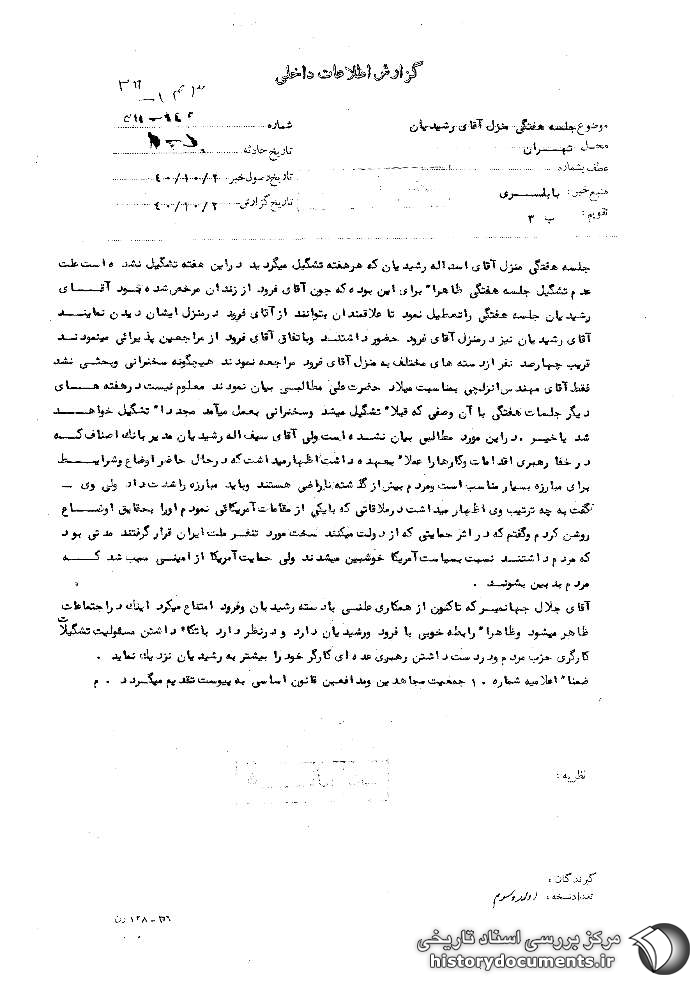 گزارش اطلاعات داخلی
موضوع جلسه هفتگی منزل آقای رشیدیان
شماره
محل تهران
تاریخ حادثه
عطف بشماره
منبع خبر: بابلسری
تاریخ وصول خبر ۴۰/۱۰/۲
تقویم: ب ۳
تاریخ گزارش ۴۰/۱۰/۲
جلسه هفتگی منزل آقای اسداله رشیدیان که هر هفته تشکیل میگردید در این هفته تشکیل نشده است علت
عدم تشکیل جلسه هفتگی ظاهراً برای این بوده که چون آقای فرود از زندان مرخص شده بود آقای
رشیدیان جلسه هفتگی را تعطیل نمود تا علاقمندان بتوانند از آقای فرود در منزل ایشان دیدن نمایند
آقای رشیدیان نیز در منزل آقای فرود حضور داشتند و باتفاق آقای فرود از مراجعین پذیرائی مینمودند
قریب چهارصد نفر از دسته های مختلف به منزل آقای فرود مراجعه نمودند هیچگونه سخنرانی و بحثی نشد
فقط آقای مهندس انزلچی بمناسبت میلاد حضرت علی مطالبی بیان نمودند معلوم نیست در هفته های
دیگر جلسات هفتگی با آن وضعی که قبلاً تشکیل میشد و سخنرانی بعمل میآمد مجدداً تشکیل خواهد
شد یا خیر . در این مورد مطالبی بیان نشده است ولی آقای سیف اله رشیدیان مدیر بانک اصناف که
در خفا رهبری اقدامات و کارها را عملاً بعهده داشت اظهار میداشت که در حال حاضر اوضاع و شرایط
برای مبارزه بسیار مناسب است و مردم بیش از گذشته ناراضی هستند و باید مبارزه را شدت داد ولی وی
گفت به چه ترتیب وی اظهار میداشت در ملاقاتی که با یکی از مقامات آمریکائی نمودم او را بحقایق اوضاع
روشن کردم و گفتم که در اثر حمایتی که از دولت میکنند سخت مورد تنفر ملت ایران قرار گرفتند مدتی بود
که مردم داشتند نسبت بسیاست آمریکا خوشبین میشدند ولی حمایت آمریکا از امینی سبب شد که
مردم بدبین بشوند .
آقای جلال جهانمیر که تاکنون از همکاری علنی با دسته رشیدیان و فرود امتناع میکرد اینک در اجتماعات
ظاهر میشود و ظاهراً رابطه خوبی با فرود و رشیدیان دارد و در نظر دارد باتکاء داشتن مسئولیت تشکیلات
کارگری حزب مردم و در دست داشتن رهبری عده ای کارگر خود را بیشتر به رشیدیان نزدیک نماید .
ضمناً اعلامیه شماره ۱۰ جمعیت مجاهدین و مدافعین قانون اساسی به پیوست تقدیم میگردد . م
نظریه :
گیرندگان :
تعداد نسخه :
مرکز بررسی اسناد تاریخی
historydocuments.ir